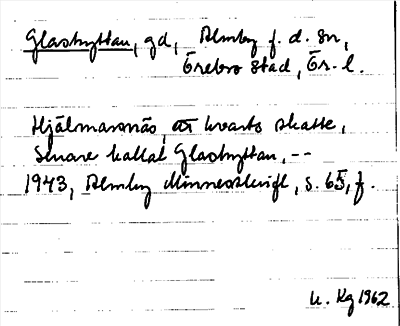 Glashyttan, gd, Almby f. d. sn,
Örebro stad, Ör. l.
Hjälmarsnäs, ett kvarts skatte,
Senare kallat Glashyttan, --
1943, Almby Minnesskrift, s. 65, f.
U. Kg 1962